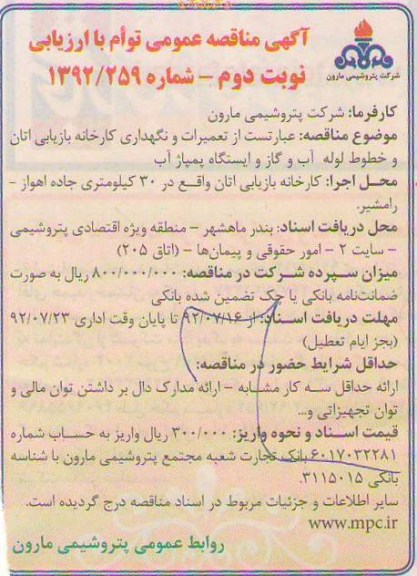 آگهی مناقصه عمومی توأم با ارزیابی
نوبت دوم – شماره ۱۳۹۲/۲۵۹
شرکت پتروشیمی مارون
کارفرما: شرکت پتروشیمی مارون
موضوع مناقصه: عبارتست از تعمیرات و نگهداری کارخانه بازیابی اتان
و خطوط لوله آب و گاز و ایستگاه پمپاژ آب
محل اجرا: کارخانه بازیابی اتان واقع در ۳۰ کیلومتری جاده اهواز –
رامشیر.
محل دریافت اسناد: بندر ماهشهر – منطقه ویژه اقتصادی پتروشیمی
– سایت ۲ – امور حقوقی و پیمان‌ها – (اتاق ۲۰۵)
میزان سپرده شرکت در مناقصه: ۸۰۰/۰۰۰/۰۰۰ ریال به صورت
ضمانت‌نامه بانکی یا چک تضمین شده بانکی
مهلت دریافت اسناد: از ۹۲/۰۷/۱۶ تا پایان وقت اداری ۹۲/۰۷/۲۳
(بجز ایام تعطیل)
حداقل شرایط حضور در مناقصه:
ارائه حداقل سه کار مشابه – ارائه مدارک دال بر داشتن توان مالی و
توان تجهیزاتی و...
قیمت اسناد و نحوه واریز: ۳۰۰/۰۰۰ ریال واریز به حساب شماره
۶۰۱۷۰۳۲۲۸۱ بانک تجارت شعبه مجتمع پتروشیمی مارون با شناسه
بانکی ۳۱۱۵۰۱۵.
سایر اطلاعات و جزئیات مربوط در اسناد مناقصه درج گردیده است.
www.mpc.ir
روابط عمومی پتروشیمی مارون